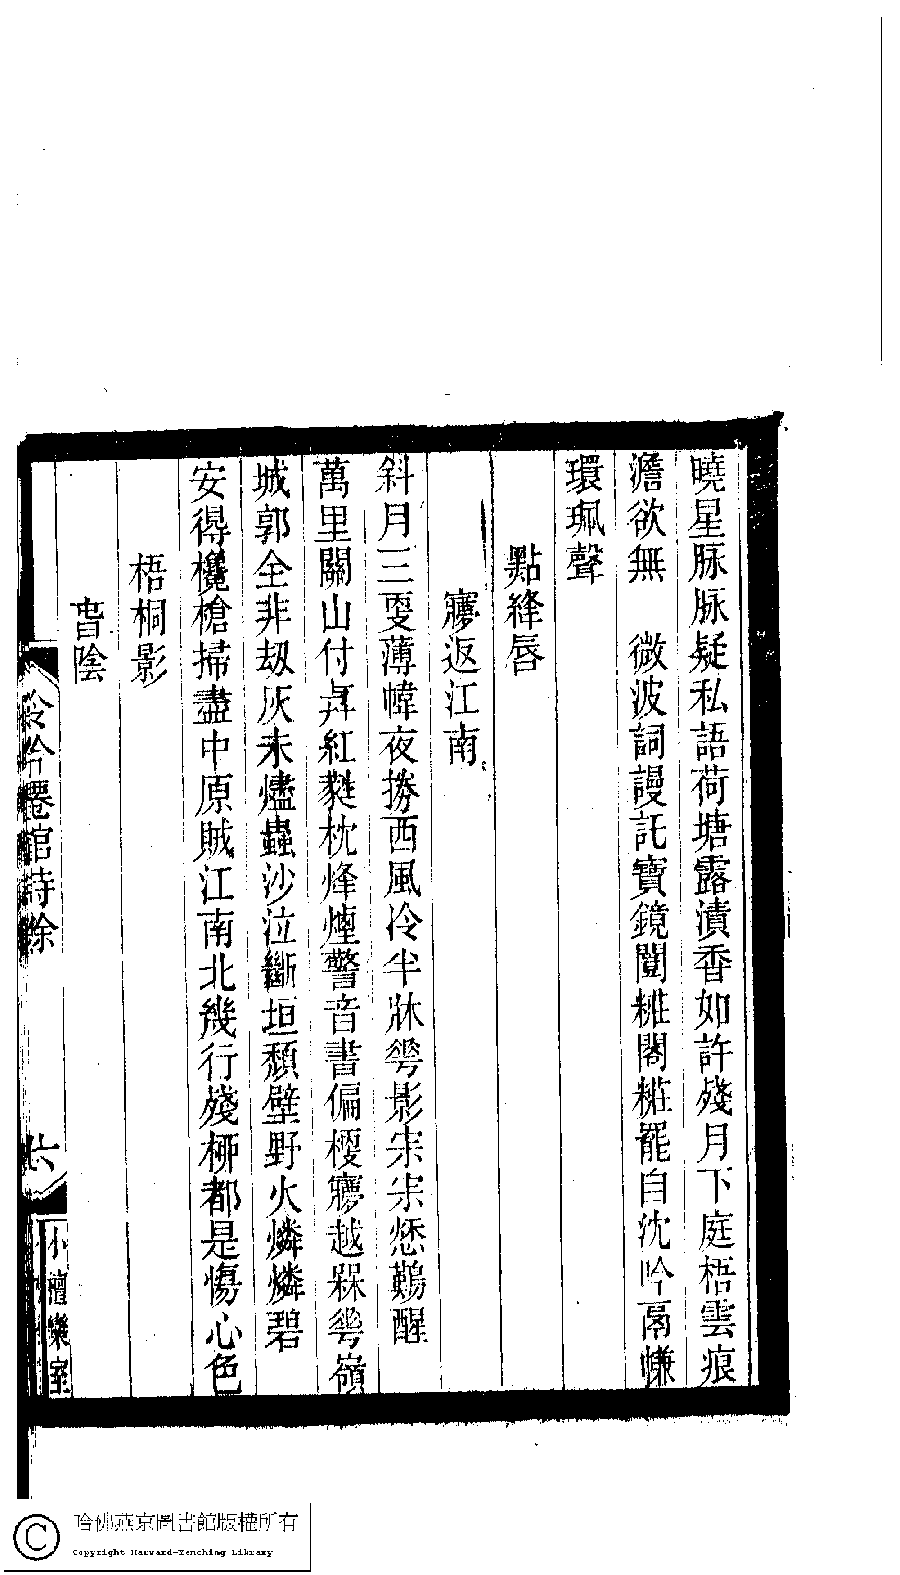 曉星脉脉疑私語荷塘露漬香如許殘月下庭梧雲痕
澹欲無　微波詞謾託寶鏡閒糚閣糚罷自沈吟鬲㡘
環珮聲
點絳唇
㝱返江南
斜月三叓薄幃夜撈西風冷半牀𠌶影宋宋愁鷄醒
萬里關山付弄紅㲠枕烽煙警音書偏梗㝱越槑𠌶嶺
城郭全非刼灰未燼蟲沙泣斷垣頽壁野火燐燐碧
安得欃槍掃盡中原賊江南北幾行殘柳都是傷心色
梧桐影
旹陰
泠泠僊館詩餘
六
小檀欒室
哈佛燕京圖書館版權所有
Copyright Harvard-Yenching Library